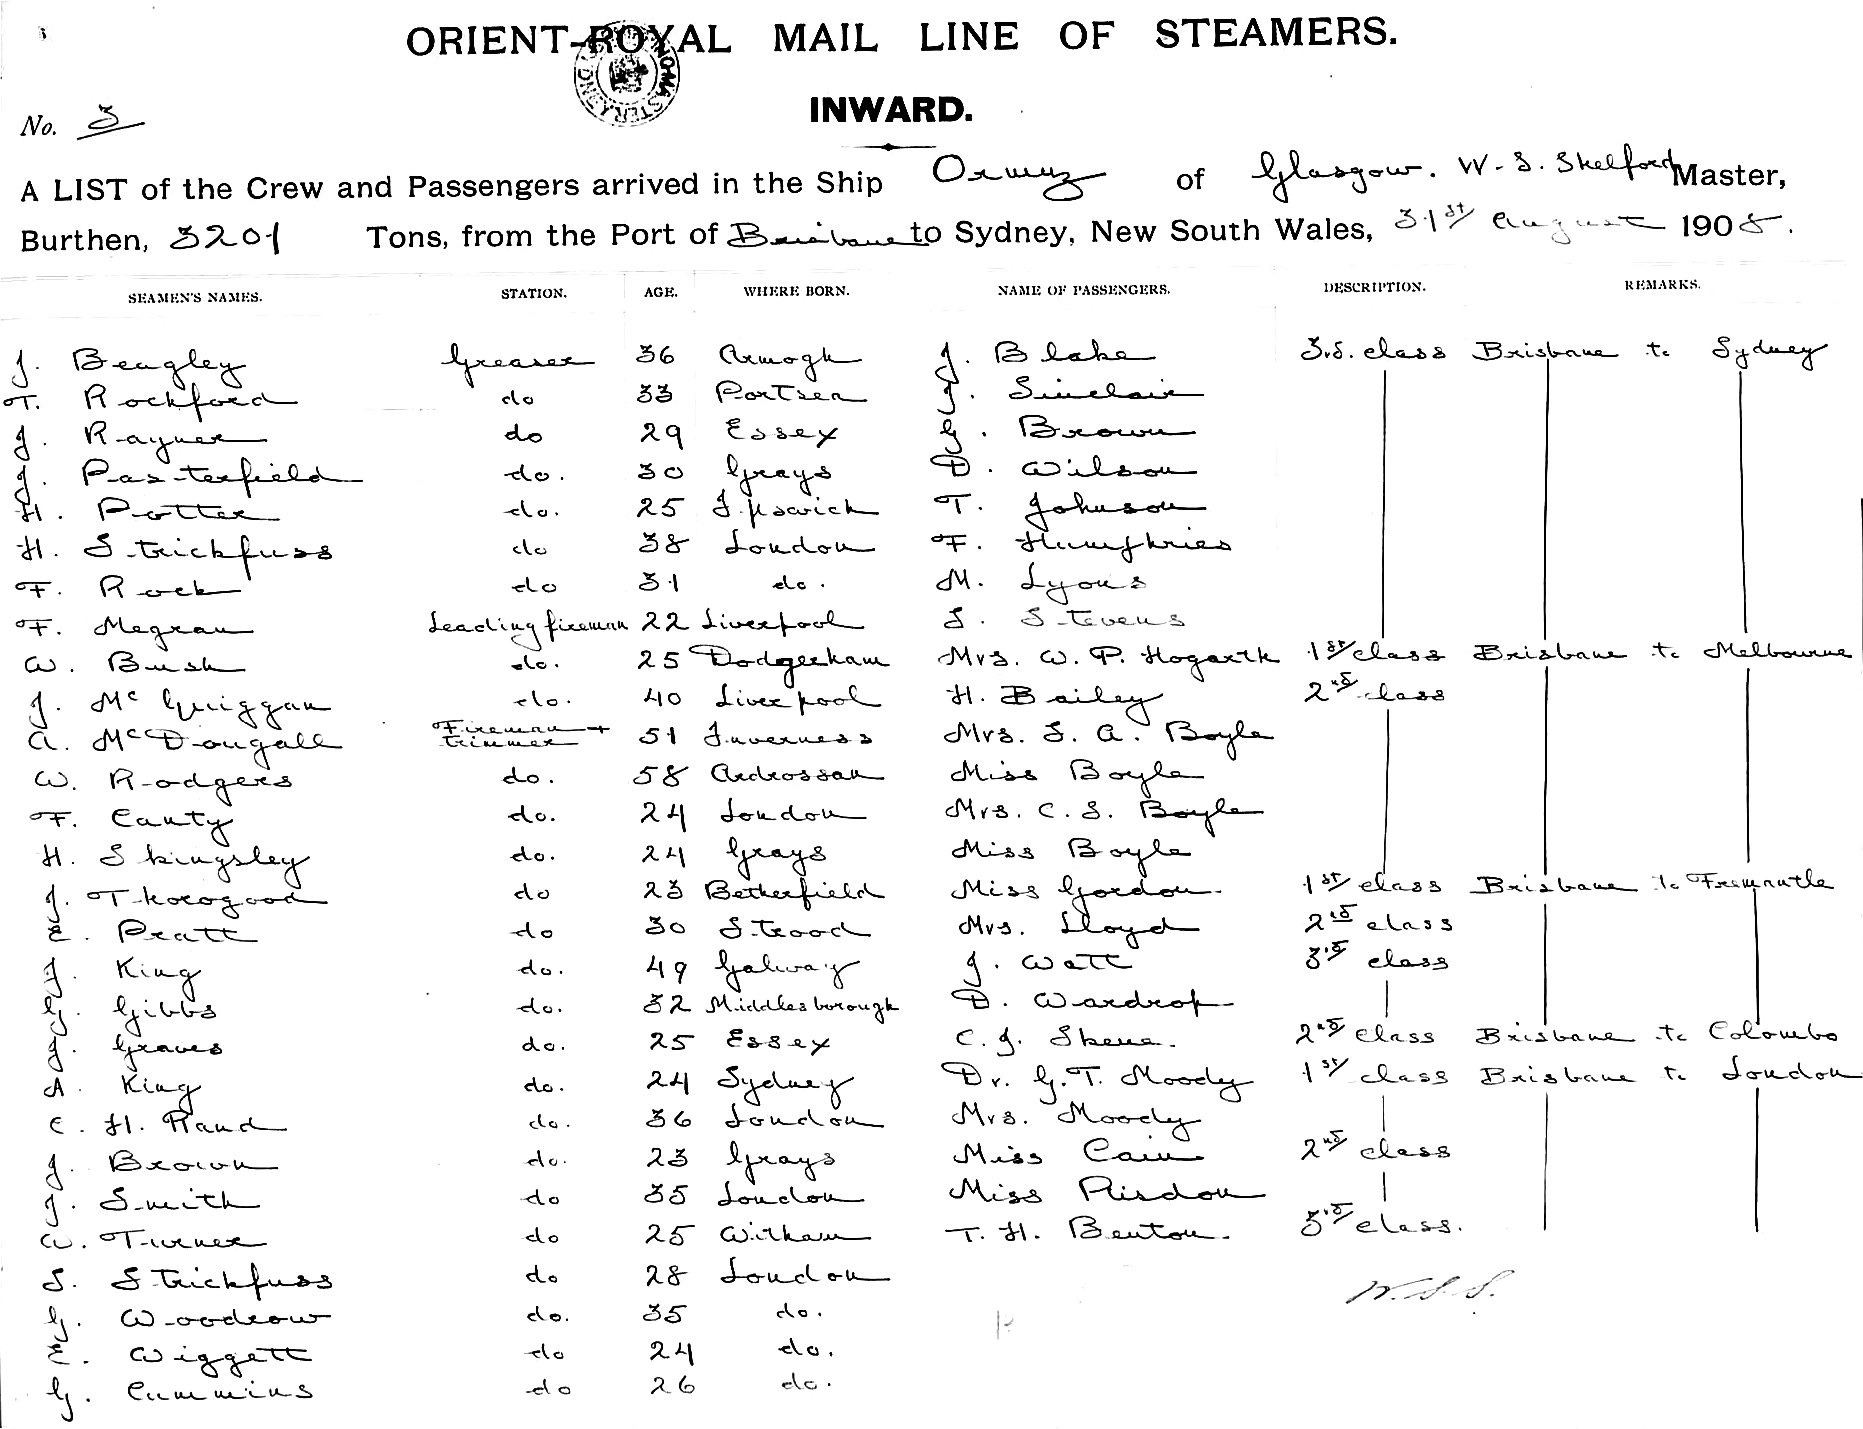 ORIENT-ROYAL MAIL LINE OF STEAMERS.
INWARD.
No. 3
A LIST of the Crew and Passengers arrived in the Ship Ormuz of Glasgow. W. S. Shelford Master,
Burthen, 3201 Tons, from the Port of Brisbane to Sydney, New South Wales, 31st August 1908.
SEAMEN'S NAMES. STATION. AGE. WHERE BORN. NAME OF PASSENGERS. DESCRIPTION. REMARKS.
J. Beagley Greaser 36 Armogh J. Blake 3rd. class Brisbane to Sydney
T. Rockford do 33 Portsea J. Sinclair
J. Rayner do 29 Essex G. Brown
J. Pas-terfield do. 30 Grays D. Wilson
H. Potter do. 25 Ipswich T. Johnson
H. Strickfuss do 38 London F. Humphries
F. Rock do 31 do. M. Lyons
F. Megran Leading fireman 22 Liverpool S. Stevens
W. Bush do. 25 Dodgerham Mrs. W. P. Hogarth 1st class Brisbane to Melbourne
J. McGuiggan do. 40 Liverpool H. Bailey 2nd class
A. McDougall Fireman + trimmer 51 Inverness Mrs. S. A. Boyle
W. Rodgers do. 58 Ardrossan Miss Boyle
F. Canty do. 24 London Mrs. C. S. Boyle
H. Skingsley do. 24 Grays Miss Boyle
J. Thorogood do 23 Betherfield Miss Gordon. 1st class Brisbane to Fremantle
E. Pratt do 30 Strood Mrs. Lloyd 2nd class
J. King do. 49 Galway J. Watt 3rd class
G. Gibbs do. 32 Middlesborough D. Wardrop
J. Graves do. 25 Essex C. J. Skene. 2nd class Brisbane to Colombo
A King do. 24 Sydney Dr. G. T. Moody 1st class Brisbane to London
C. H. Rand do. 36 London Mrs. Moody
J. Brown do. 23 Grays Miss Cain 2nd class
J. Smith do 35 London Miss Risdon
W. Turner do 25 Witham T. H. Benton. 3rd class.
S. Strickfuss do 28 London
G. Woodrow do. 35 do.
E. Wiggett do 24 do.
G. Cummins do 26 do.
W.S.S.